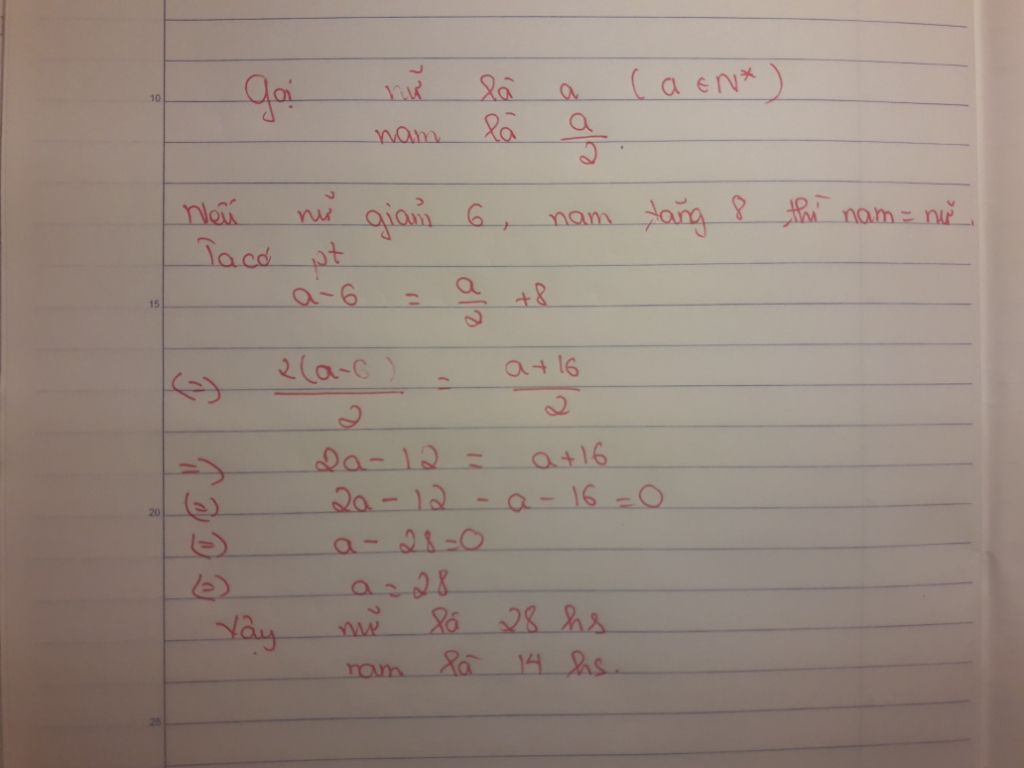 10
Gọi nữ là a (a ∈ N*)
nam là a/2.
Nếu nữ giảm 6, nam tăng 8 thì nam = nữ.
Ta có pt
15
a - 6 = a/2 + 8
(=) 2(a-6)/2 = a+16/2
=) 2a - 12 = a+16
20
(=) 2a - 12 - a - 16 = 0
(=) a - 28 = 0
(=) a = 28
Vậy nữ là 28 hs
nam là 14 hs.
25